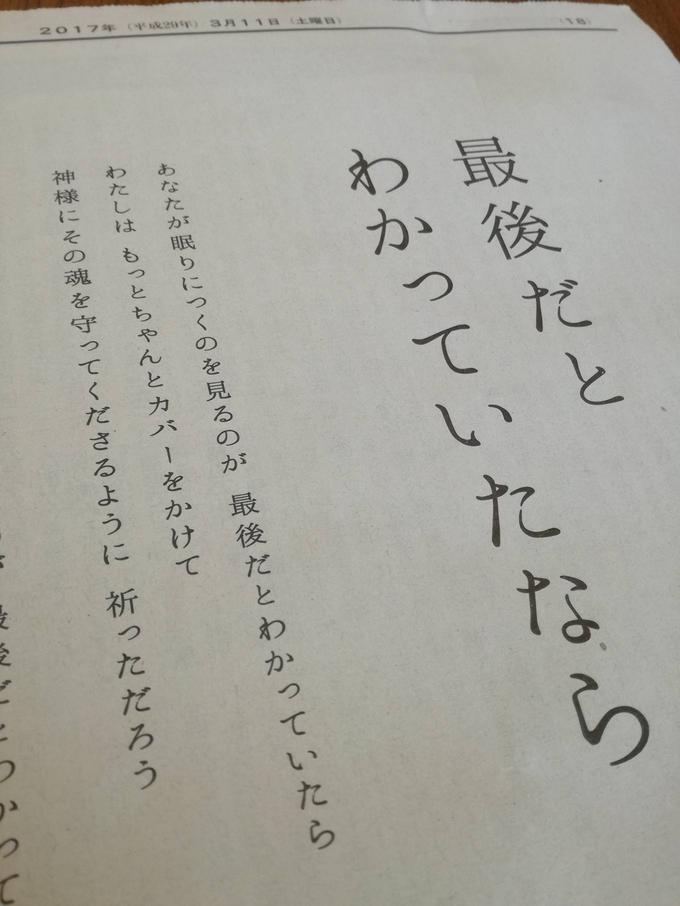 2017年（平成29年）3月11日（土曜日）
（18）
最後だと
わかっていたなら
あなたが眠りにつくのを見るのが　最後だとわかっていたら
わたしは　もっとちゃんとカバーをかけて
神様にその魂を守ってくださるように　祈っただろう
最後だとわかって